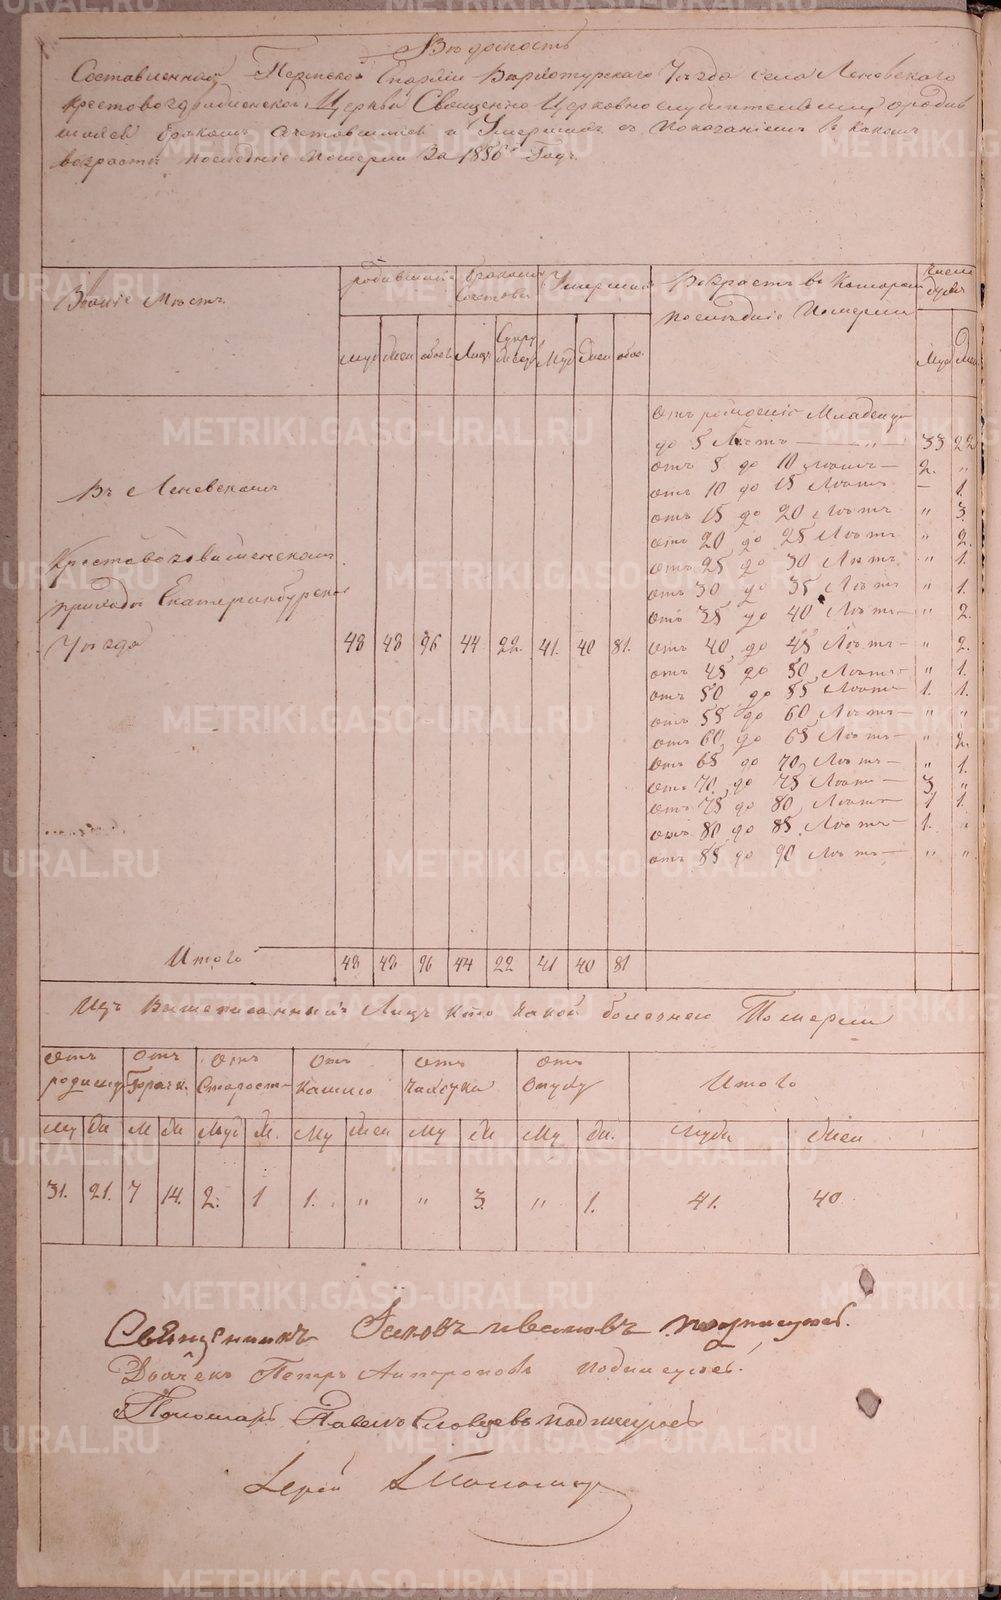 Вѣдомость
Составленная Пермской Епархіи Верхотурскаго Уѣзда села Леневскаго
Крестовоздвиженской Церкви Священно Церковнослужителями о родив
шихся бракомъ сочетавшихся и Умершихъ съ показаніемъ въ какомъ
возрастѣ последніе померли За 1886 Годъ.
Званіе Мѣстъ
родившихся
бракомъ
Умерших
Возрастъ въ Котором
последніе Померли
число
душъ
муж жен обое Лиц Супру жествъ Муж жен обое. Муж Жен
Отъ рожденія Младенце
до 5 Лѣтъ — 33 22
отъ 5 до 10 Лѣтъ — 2. "
Въ Леневскомъ
отъ 10 до 15 Лѣтъ — 1.
отъ 15 до 20 Лѣтъ " 3.
отъ 20 до 25 Лѣтъ " 2.
Крестовоздвиженскомъ
отъ 25 до 30 Лѣтъ " 1.
приходѣ Екатеринбургско
отъ 30 до 35 Лѣтъ " 1.
отъ 35 до 40 Лѣтъ — " 2.
Уѣзда 48 48 96 44 22. 41. 40 81.
отъ 40 до 45 Лѣтъ — " 2.
отъ 45 до 50 Лѣтъ — " 1.
отъ 50 до 55 Лѣтъ — 1. 1.
отъ 55 до 60 Лѣтъ — " "
отъ 60 до 65 Лѣтъ — " 2.
отъ 65 до 70 Лѣтъ — " 1.
отъ 70 до 75 Лѣтъ — 3 "
отъ 75 до 80 Лѣтъ — 1 1.
отъ 80 до 85 Лѣтъ — 1. "
отъ 85 до 90 Лѣтъ — " "
Итого 48 48 96 44 22 41 40 81
Изъ Вышеписанныхъ Лицъ кто какой болезнею Померли
отъ родимцу
отъ Горячк.
отъ Старост
отъ Кашлю
отъ Чахотки
отъ Опуху
Итого
Му Жи М Жи Муж Ж. Му Жен Му Жи Му Жи. Мужи Жен
31. 21. 7 14. 2. 1 1. " " 3. " 1. 41. 40
Священникъ Іаковъ Ивановъ подписуюсь.
Дьячекъ Петръ Антроповъ подписуюсь.
Пономарь Павелъ Словцевъ подписуюсь
METRIKI.GASO-URAL.RU